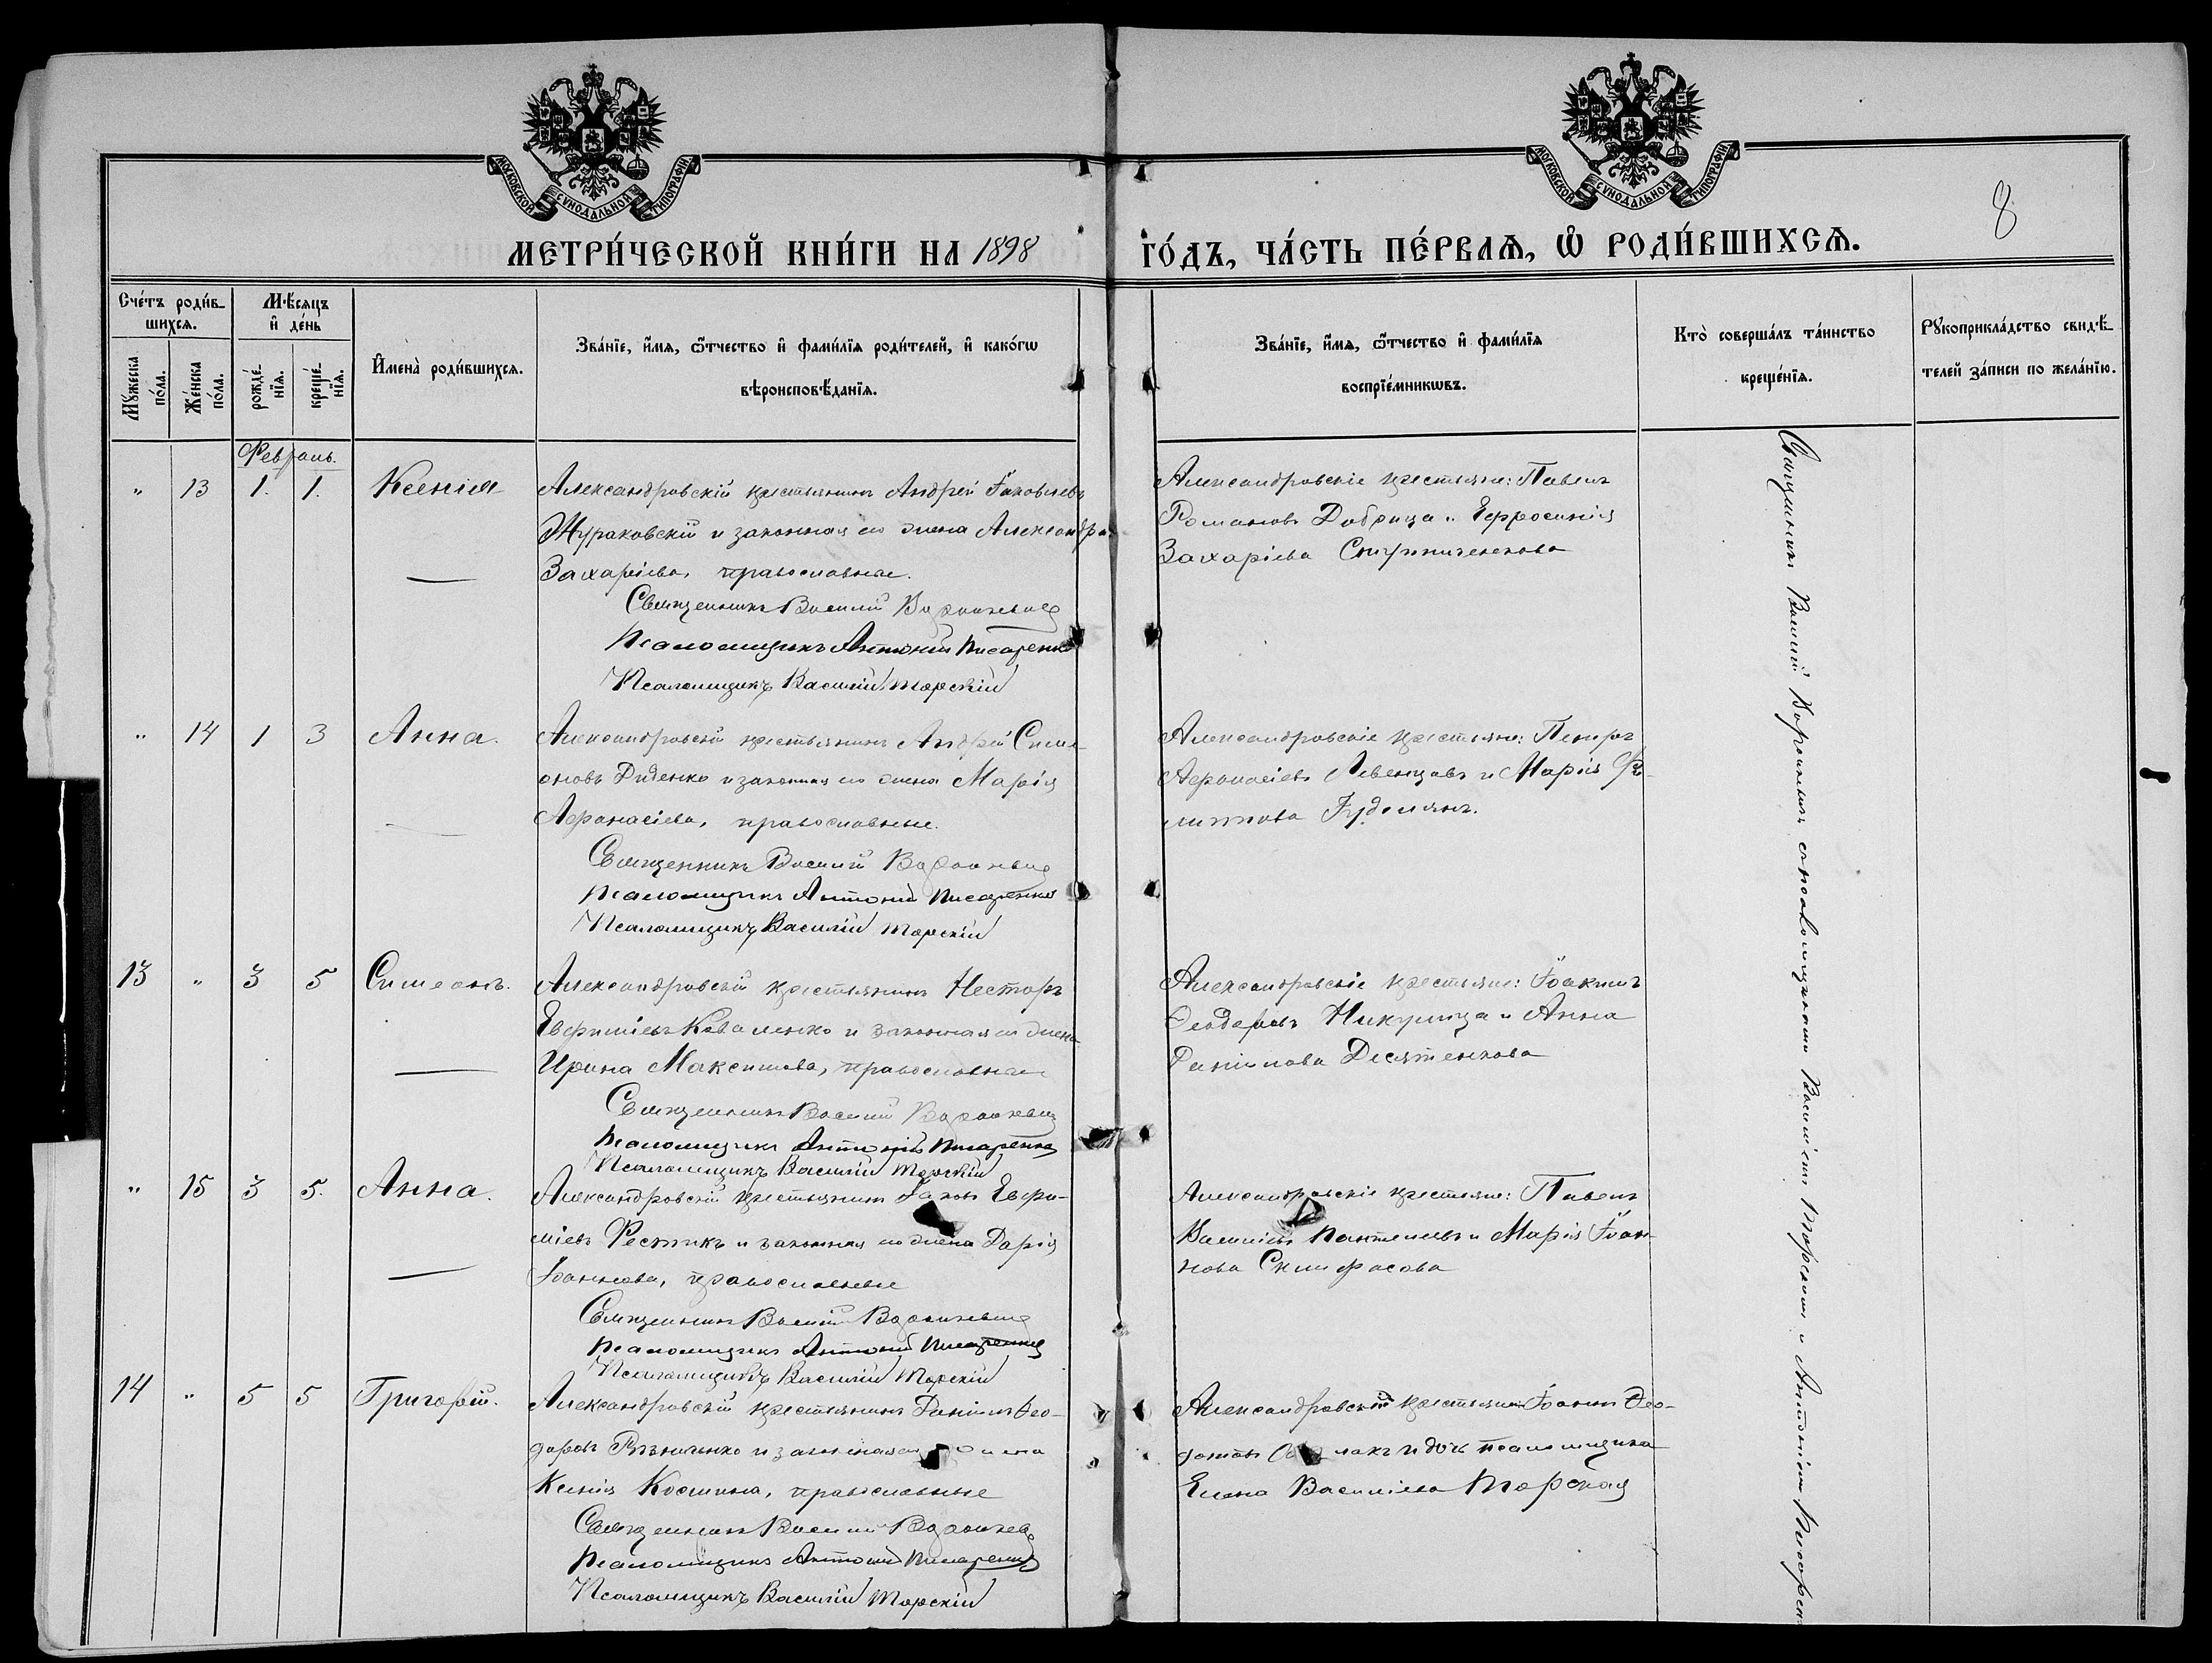 МОСКОВСКОЙ СУНОДАЛЬНОЙ ТИПОГРАФІИ
МОСКОВСКОЙ СУНОДАЛЬНОЙ ТИПОГРАФІИ
8
МЕТРИ́ЧЕСКОЙ КНИ́ГИ НА 1898 ГО́ДЪ, ЧА́СТЬ ПЕ́РВАѦ, Ѡ҆ РОДИ́ВШИХСѦ.
Сче́тъ роди́вшихсѧ.
Мꙋ́жеска по́ла.
Же́нска по́ла.
Мѣ́сѧцъ и҆ де́нь
рожде́нїѧ.
креще́нїѧ.
И҆мена̀ роди́вшихсѧ.
Зва́нїе, и҆́мѧ, ѻ҆́тчество и҆ фами́лїѧ роди́телей, и҆ како́гѡ
вѣроисповѣ́данїѧ.
Зва́нїе, и҆́мѧ, ѻ҆́тчество и҆ фами́лїѧ
воспрїе́мникѡвъ.
Кто̀ соверша́лъ та́инство
креще́нїѧ.
Рꙋкоприкла́дство свидѣ́телей за́писи по жела́нїю.
Февраль.
" 13 1. 1. Ксенія
Александровскій крестьянинъ Андрей Іаковлевъ
Жураковскій и законная его жена Александра
Захаріева, православные.
Священникъ Василій Воронкевичъ
Псаломщикъ Антоній Писаренко
Псаломщикъ Василій Торскій
Александровскіе крестьяне: Павелъ
Романовъ Добрица и Ефросинія
Захаріева
" 14 1 3 Анна.
Александровскій крестьянинъ Андрей Симе-
оновъ Диденко и законная его жена Марія
Афанасіева, православные.
Священникъ Василій Воронкевичъ
Псаломщикъ Антоній Писаренко
Псаломщикъ Василій Торскій
Александровскіе крестьяне: Петръ
Афанасіевъ Левенцовъ и Марія Фи-
липпова
13 " 3 5 Симеонъ.
Александровскій крестьянинъ Несторъ
Евфиміевъ Коваленко и законная его жена
Ирина Максимова, православные
Священникъ Василій Воронкевичъ
Псаломщикъ Антоній Писаренко
Псаломщикъ Василій Торскій
Александровскіе крестьяне: Іоакимъ
Ѳеодоровъ Никулица и Анна
Даніилова Десятенкова
" 15 3 5. Анна.
Александровскій крестьянинъ Іаковъ Евфи-
міевъ Рестикъ и законная его жена Дарія
Іоаннова, православные
Священникъ Василій Воронкевичъ
Псаломщикъ Антоній Писаренко
Псаломщикъ Василій Торскій
Александровскіе крестьяне: Павелъ
Василіевъ Пантелеевъ и Марія Іоан-
нова
14 " 5 5 Григорій.
Александровскій крестьянинъ Даніилъ Ѳео-
доровъ и законная его жена
Ксенія Космина, православные
Священникъ Василій Воронкевичъ
Псаломщикъ Антоній Писаренко
Псаломщикъ Василій Торскій
Александровскій крестьянинъ Іоаннъ Ѳео-
дотовъ и дочь псаломщика
Елена Василіева Торская
Священникъ Василій Воронкевичъ съ псаломщиками Василіемъ Торскимъ и Антоніемъ Писарен